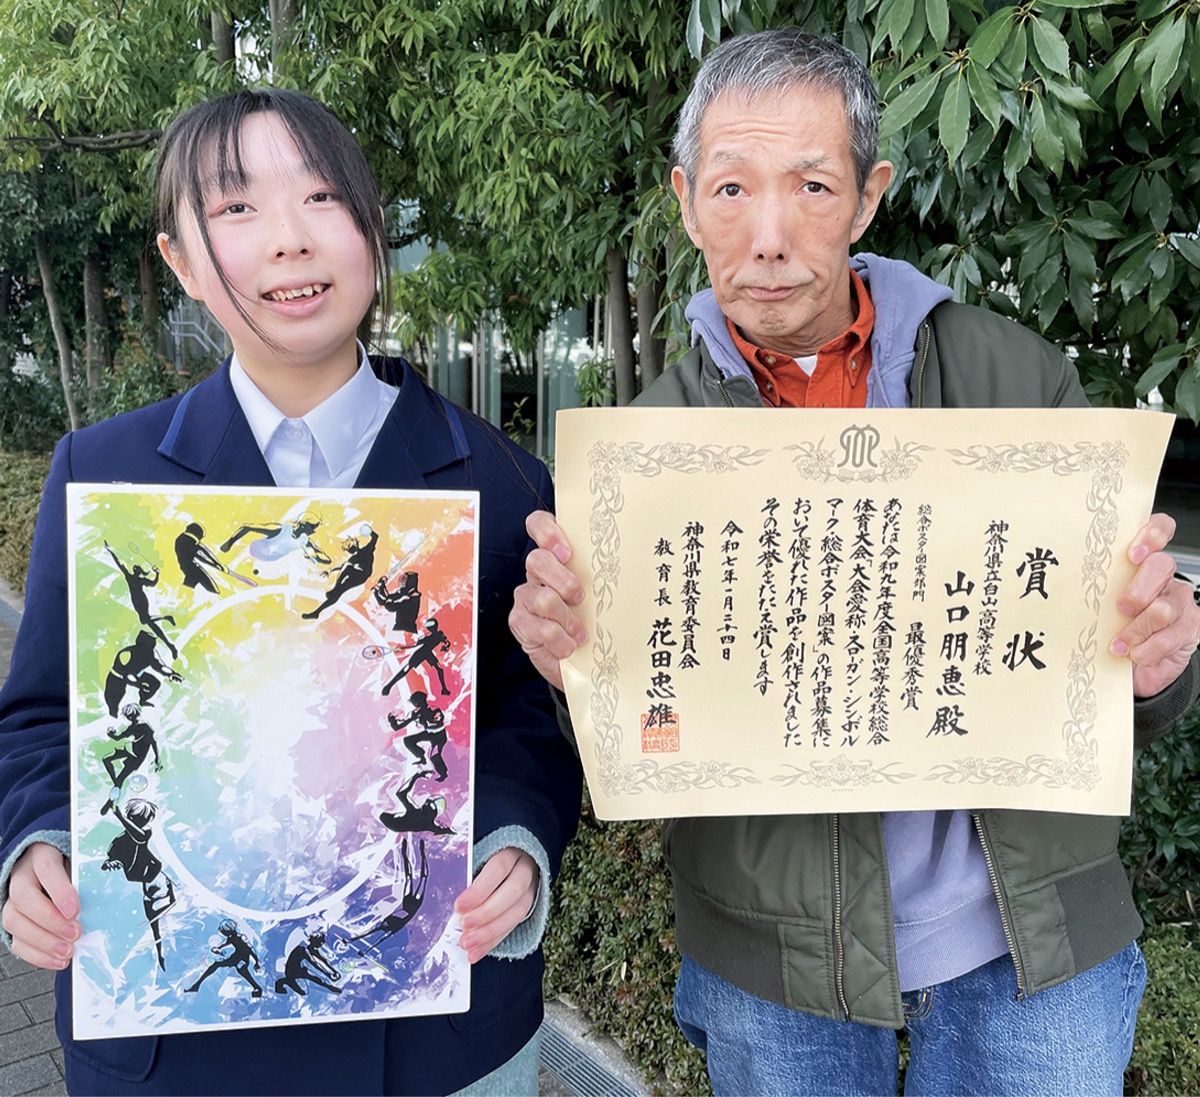 賞状
神奈川県立白山高等学校
山口朋恵殿
総合ポスター図案部門
最優秀賞
あなたは令和九年度全国高等学校総合
体育大会「大会愛称・スローガン・シンボル
マーク・総合ポスター図案」の作品募集に
おいて優れた作品を創作されました
その栄誉をたたえ賞します
令和七年一月二十四日
神奈川県教育委員会
教育長 花田忠雄